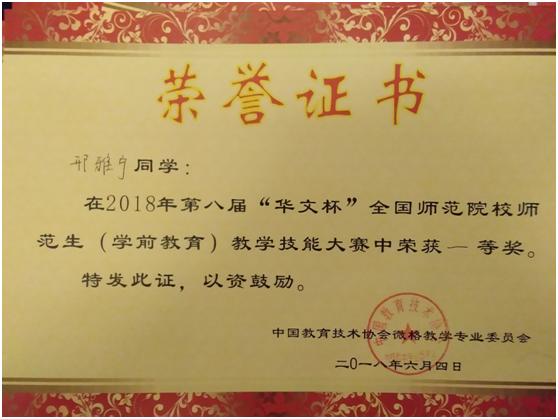 荣誉证书
邢雅夕同学：
在2018年第八届“华文杯”全国师范院校师
范生（学前教育）教学技能大赛中荣获一等奖。
特发此证，以资鼓励。
中国教育技术协会微格教学专业委员会
二〇一八年六月四日